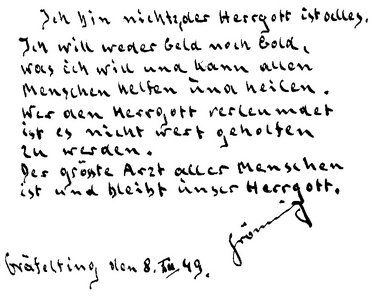 Ich bin nichts, der Herrgott ist alles.
Ich will weder Geld noch Gold,
was ich will und kann allen
Menschen helfen und heilen.
Wer den Herrgott verleumdet
ist es nicht wert geholfen
zu werden.
Der größte Arzt aller Menschen
ist und bleibt unser Herrgott.
Gröning
Gräfelfing den 8. XII 49.